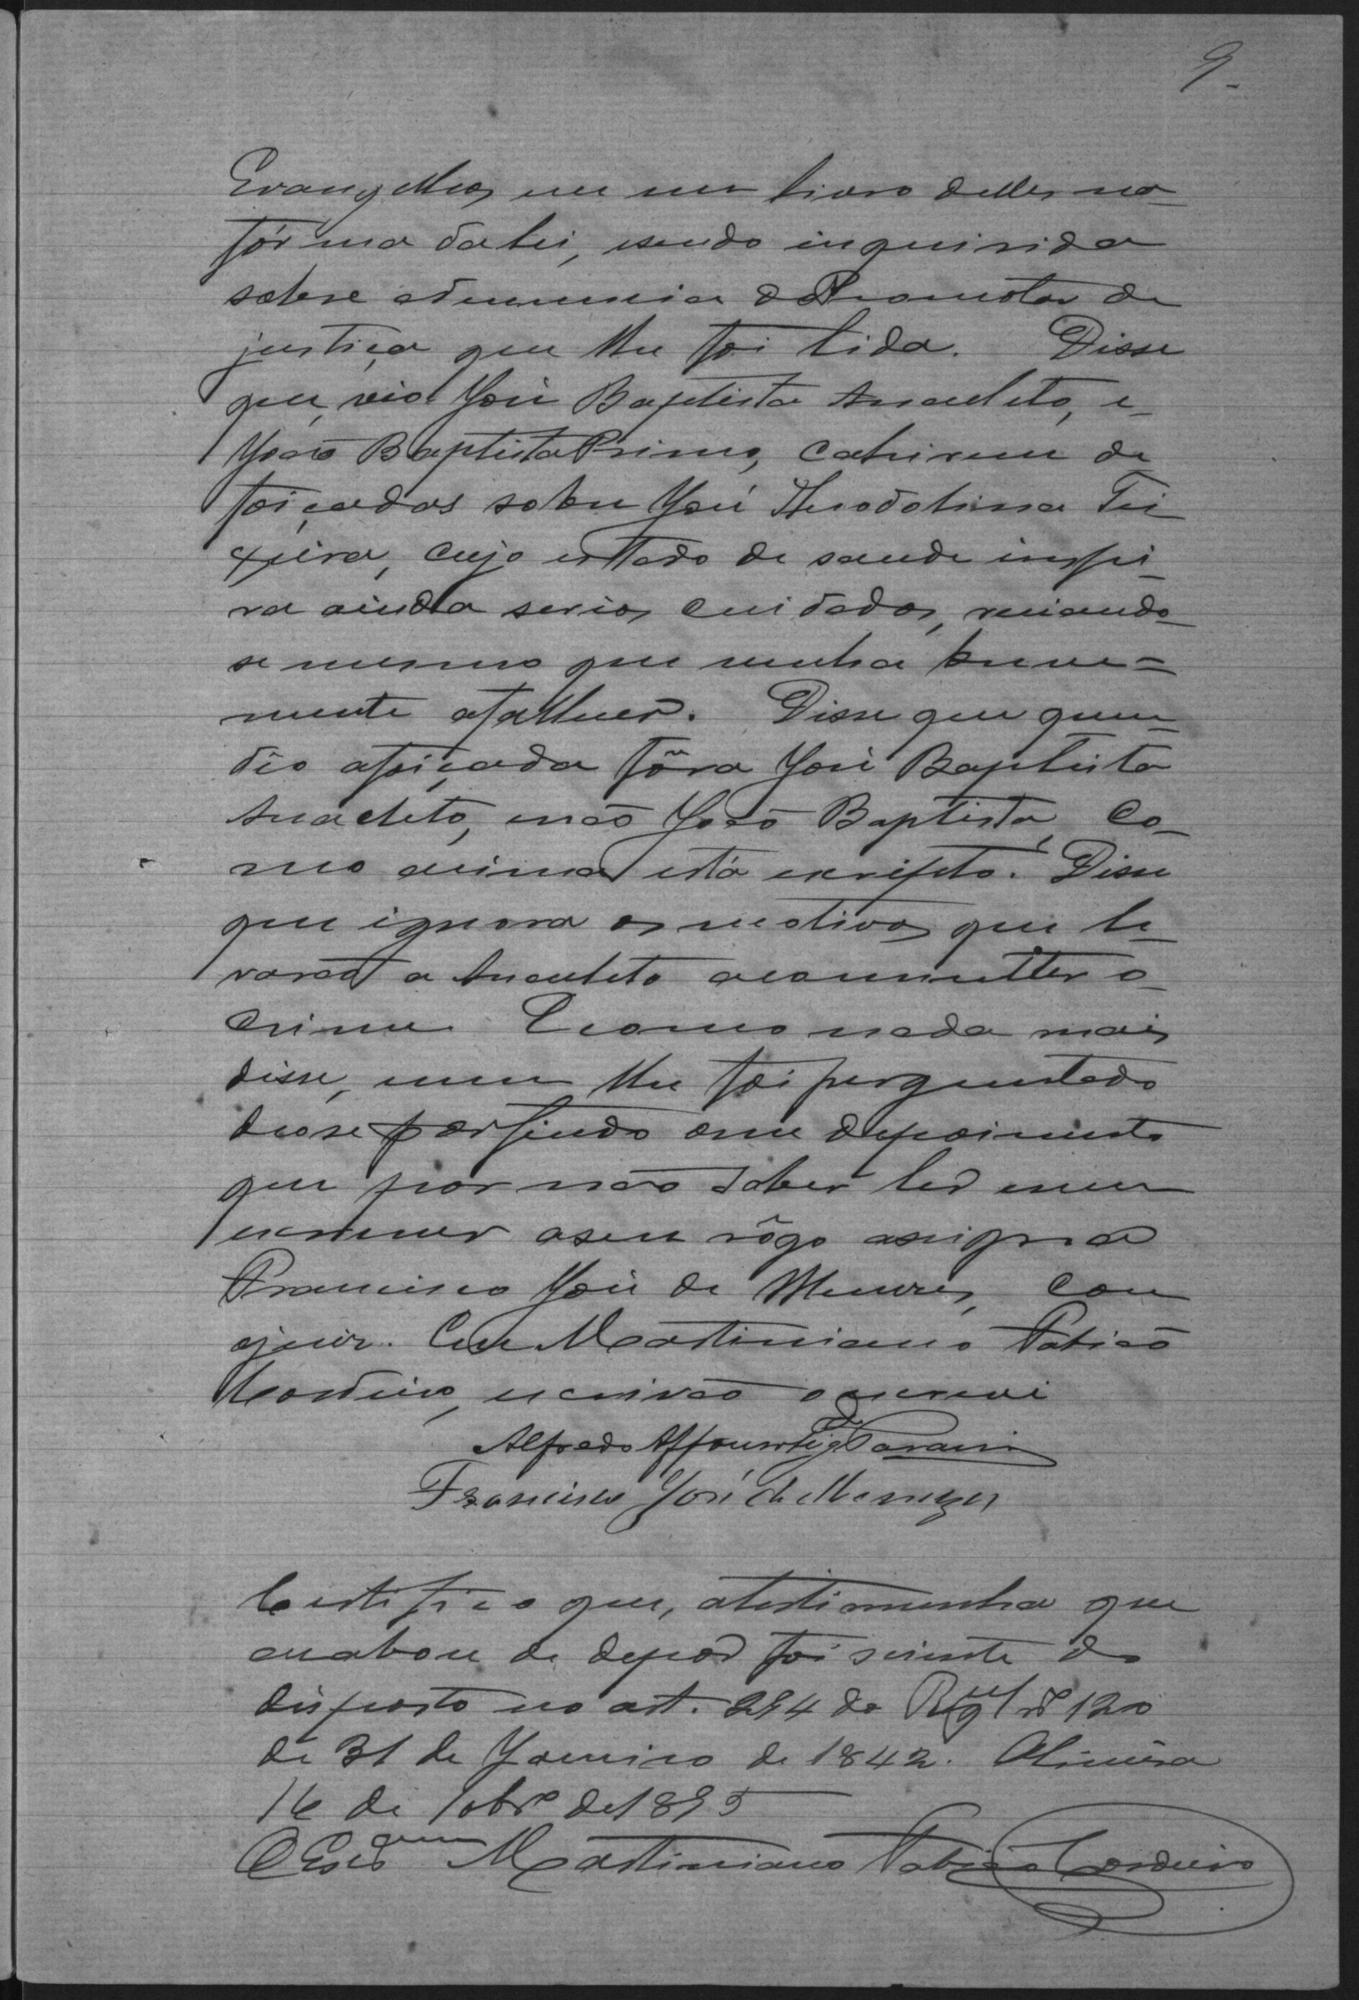 9
Evangelhos em um livro delles na
fórma da lei, e sendo inquirida
sobre a denuncia do Promotor de
justiça que lhe foi lida. Disse
que, vio José Baptista Anacleto, e
João Baptista Primo, cahirem de
foiçadas sobre José Theodolino Tei
xeira, cujo estado de saude inspi-
ra ainda serios cuidados, receiando
se mesmo que venha breve=
mente a fallecer. Disse que quem
deo a foiçada fôra José Baptista
Anacleto, e não João Baptista, co-
mo acima está escripto. Disse
que ignora os motivos que le-
varão a Anacleto a commetter o
crime. E como nada mais
disse, e nem lhe foi perguntado
deo se por findo esse depoimento
que por não saber ler e nem
escrever a seu rôgo assigna
Francisco José de Menezes, com
o juiz. Eu Martiniano Fabião
Cordeiro, escrivão o escrevi
Alfredo Affonso
Francisco José de Menezes
Certifico que, a testimunha que
acabou de depor foi sciente do
disposto no art. 294 do Regul nº 120
de 31 de Janeiro de 1842.
16 de 9obrº de 1895
O Escrivam Martiniano Fabião Cordeiro